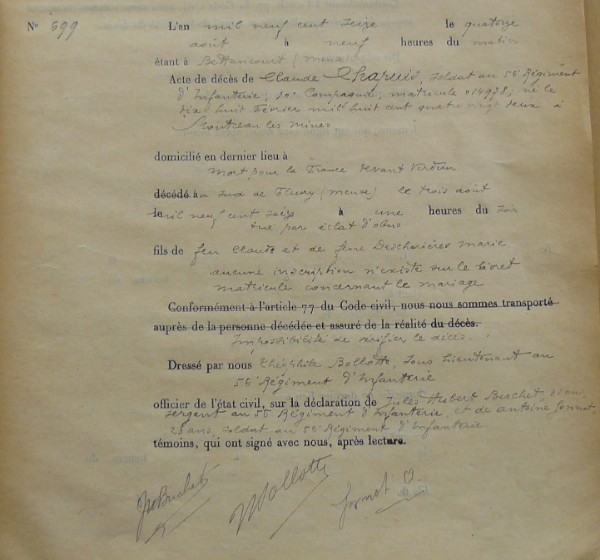 N° 599
L'an mil neuf cent seize le quatorze
août à neuf heures du matin
étant à Béthancourt (meuse)
Acte de décès de Claude Chapuis, soldat au 56 Régiment
d'Infanterie, 10e Compagnie, matricule 014938, né le
dix huit Février mil huit cent quatre vingt deux à
Montceau les mines
domicilié en dernier lieu à
mort pour la France devant Verdun
décédé à Sud de Fleury (meuse) le trois août
le mil neuf cent seize à une heures du soir
tué par éclat d'obus
fils de feu Claude et de feue Descharières marie
aucune inscription n'existe sur le livret
matricule concernant le mariage
Conformément à l'article 77 du Code civil, nous nous sommes transporté
auprès de la personne décédée et assuré de la réalité du décès.
Impossibilité de vérifier le décès.
Dressé par nous Théophile Bollotte, Sous Lieutenant au
56 Régiment d'Infanterie
officier de l'état civil, sur la déclaration de Jules Hubert Berchet,
sergent au 56 Régiment d'Infanterie, et de antoine
ans, soldat au 56 Régiment d'Infanterie
témoins, qui ont signé avec nous, après lecture.
Bollotte